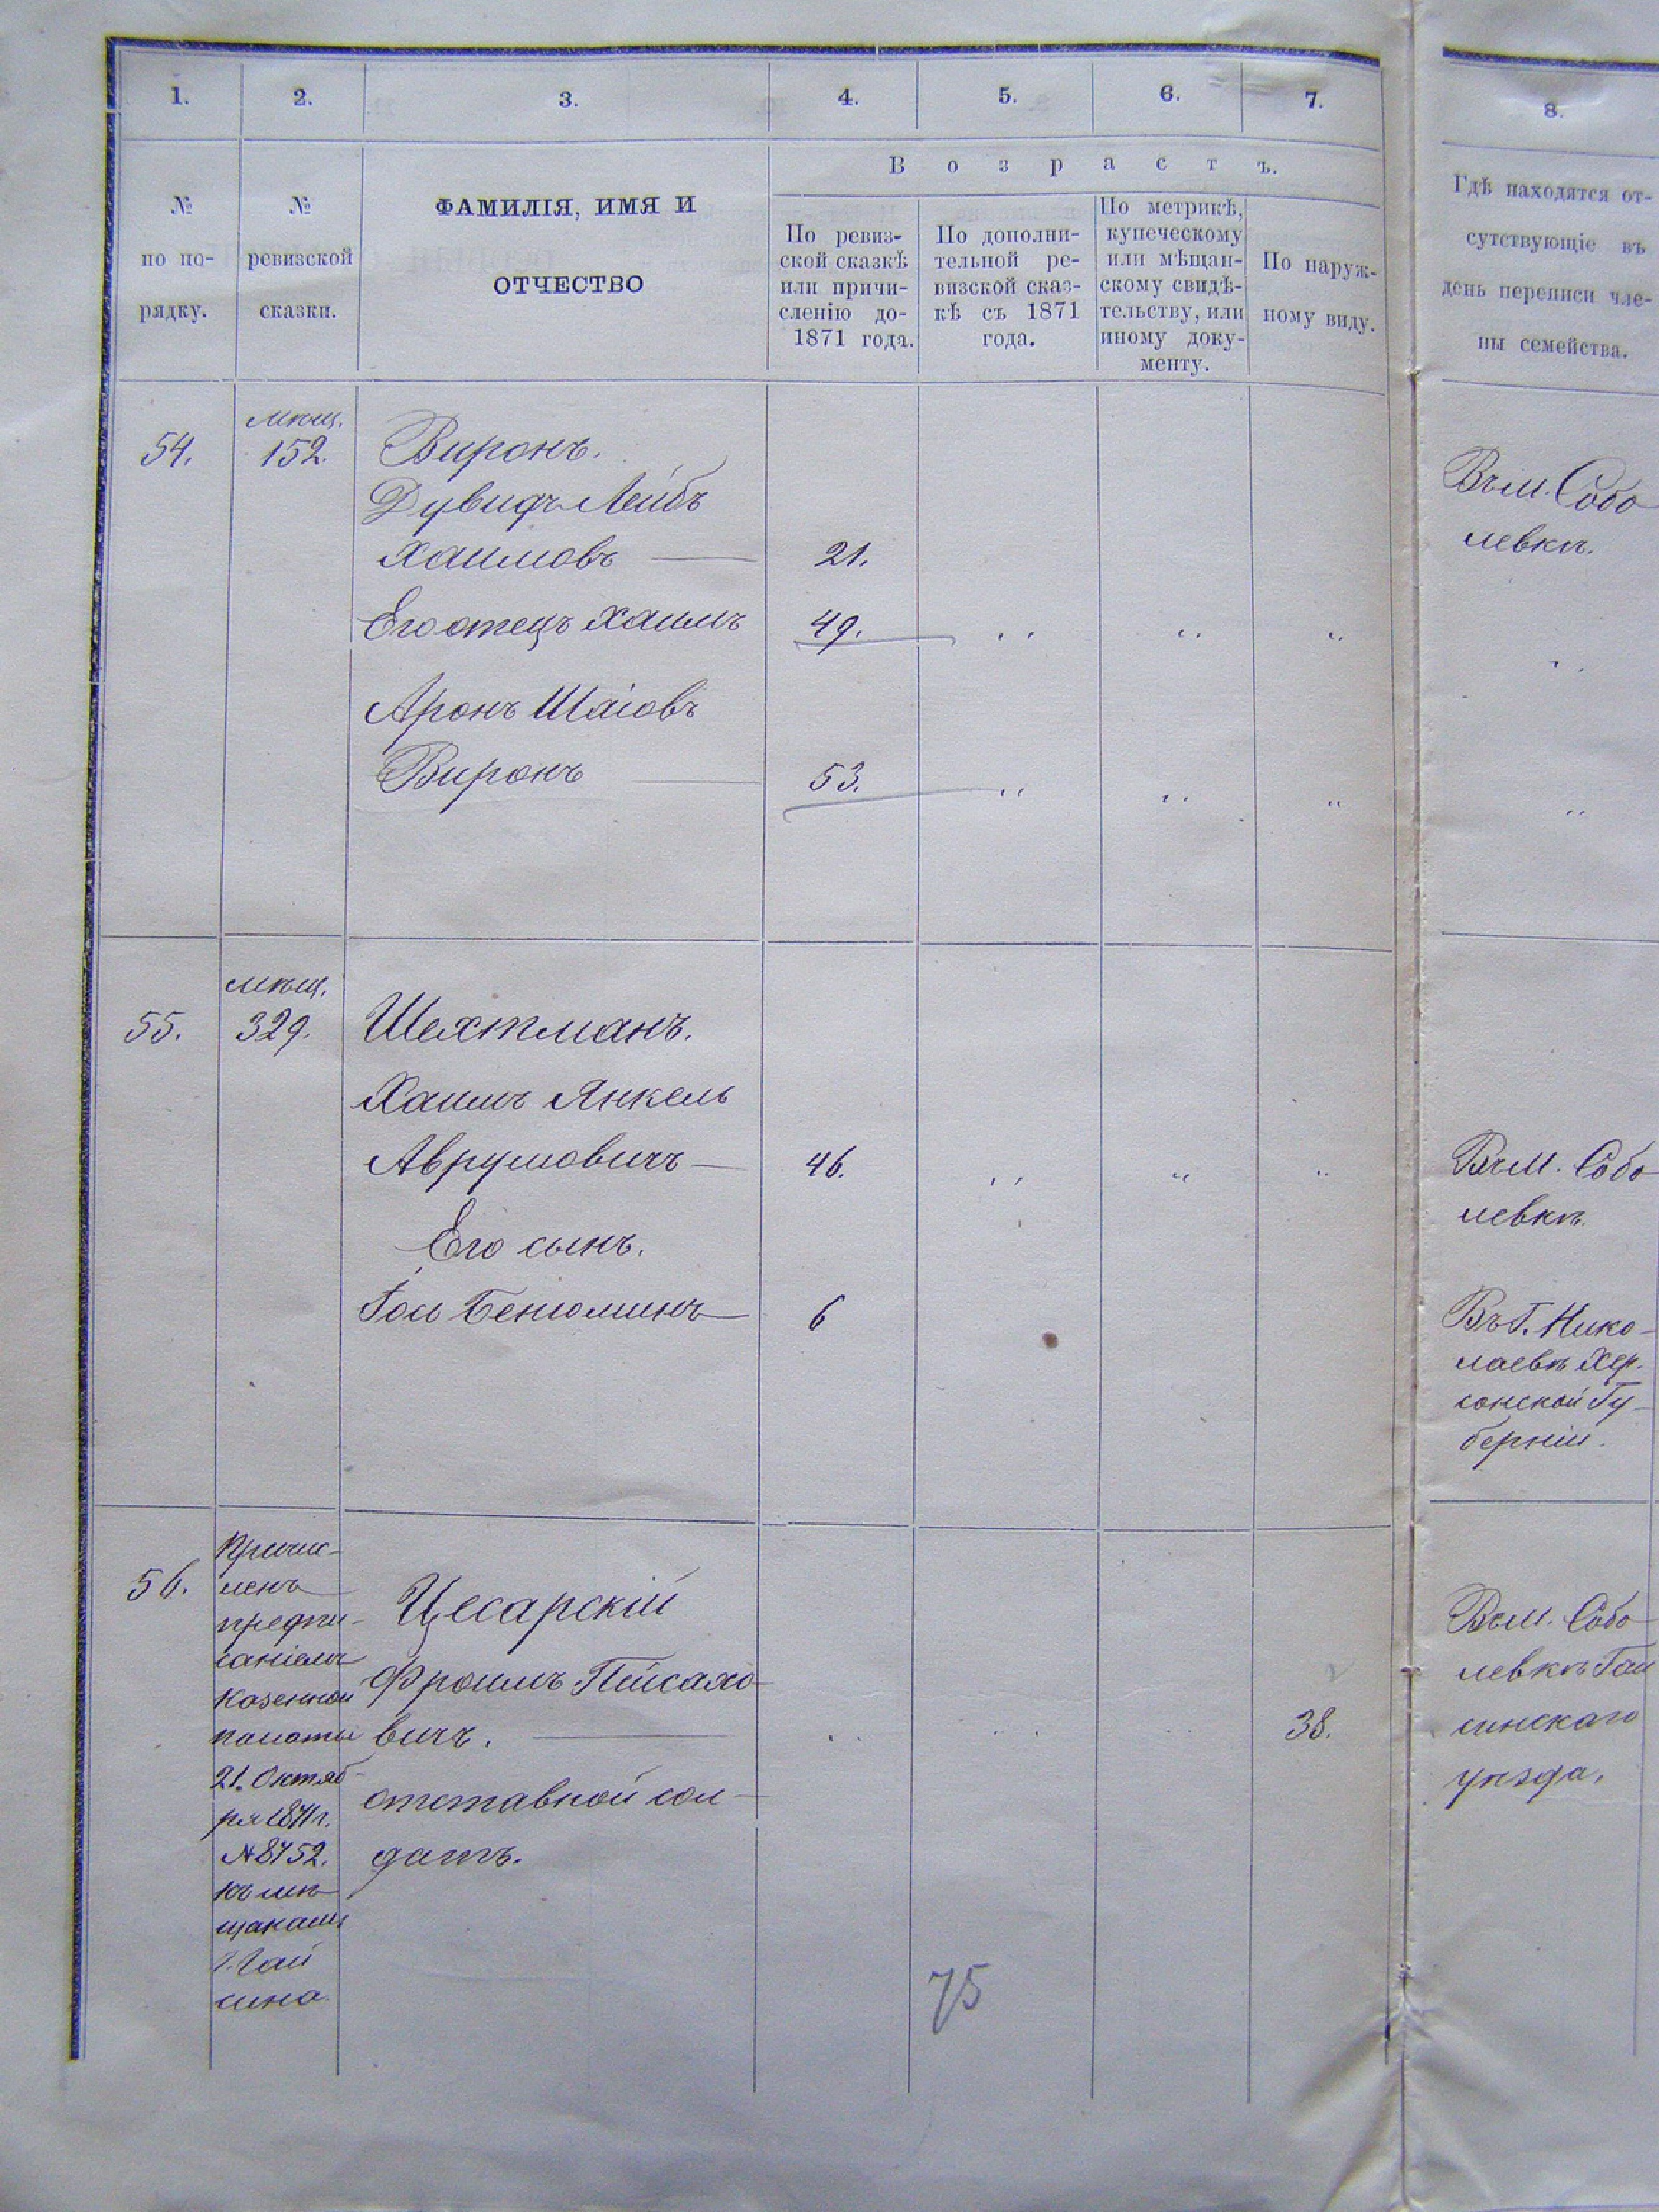 1. 2. 3. 4. 5. 6. 7. 8.
№ по по-рядку.
№ ревизской сказки.
ФАМИЛІЯ, ИМЯ И
ОТЧЕСТВО
Возрастъ.
По ревиз-
ской сказкѣ
или причи-
сленію до-
1871 года.
По дополни-
тельной ре-
визской сказ-
кѣ съ 1871
года.
По метрикѣ,
купеческому
или мѣщан-
скому свидѣ-
тельству, или
иному доку-
менту.
По наруж-
ному виду.
Гдѣ находятся от-
сутствующіе въ
день переписи чле-
ны семейства.
мѣщ.
54. 152. Виронъ.
Дувидъ Лейбъ
Хаимовъ — 21.
Въ м. Собо
левкѣ.
Его отецъ Хаимъ 49. " " " "
Аронъ Шаіовъ
Виронъ — 53. " " " "
мѣщ.
55. 329. Шехтманъ.
Хаимъ Янкель
Аврумовичъ — 46. " " "
Въ м. Собо
левкѣ.
Его сынъ.
Іось Бенюминъ — 6
Въ Г. Нико-
лаевѣ Хер-
сонской Гу-
берніи.
56.
Причис-
ленъ
предпи-
саніемъ
Казенной
палаты
21. Октяб-
ря 1871 г.
№ 8752.
къ мѣ
щанамъ
г. Гай
сина
Цесарскій
Фроимъ Пейсахо-
вичъ. — " " " 38.
отставной сол-
датъ.
Въ м. Собо
левкѣ Гай
синскаго
уѣзда.
75